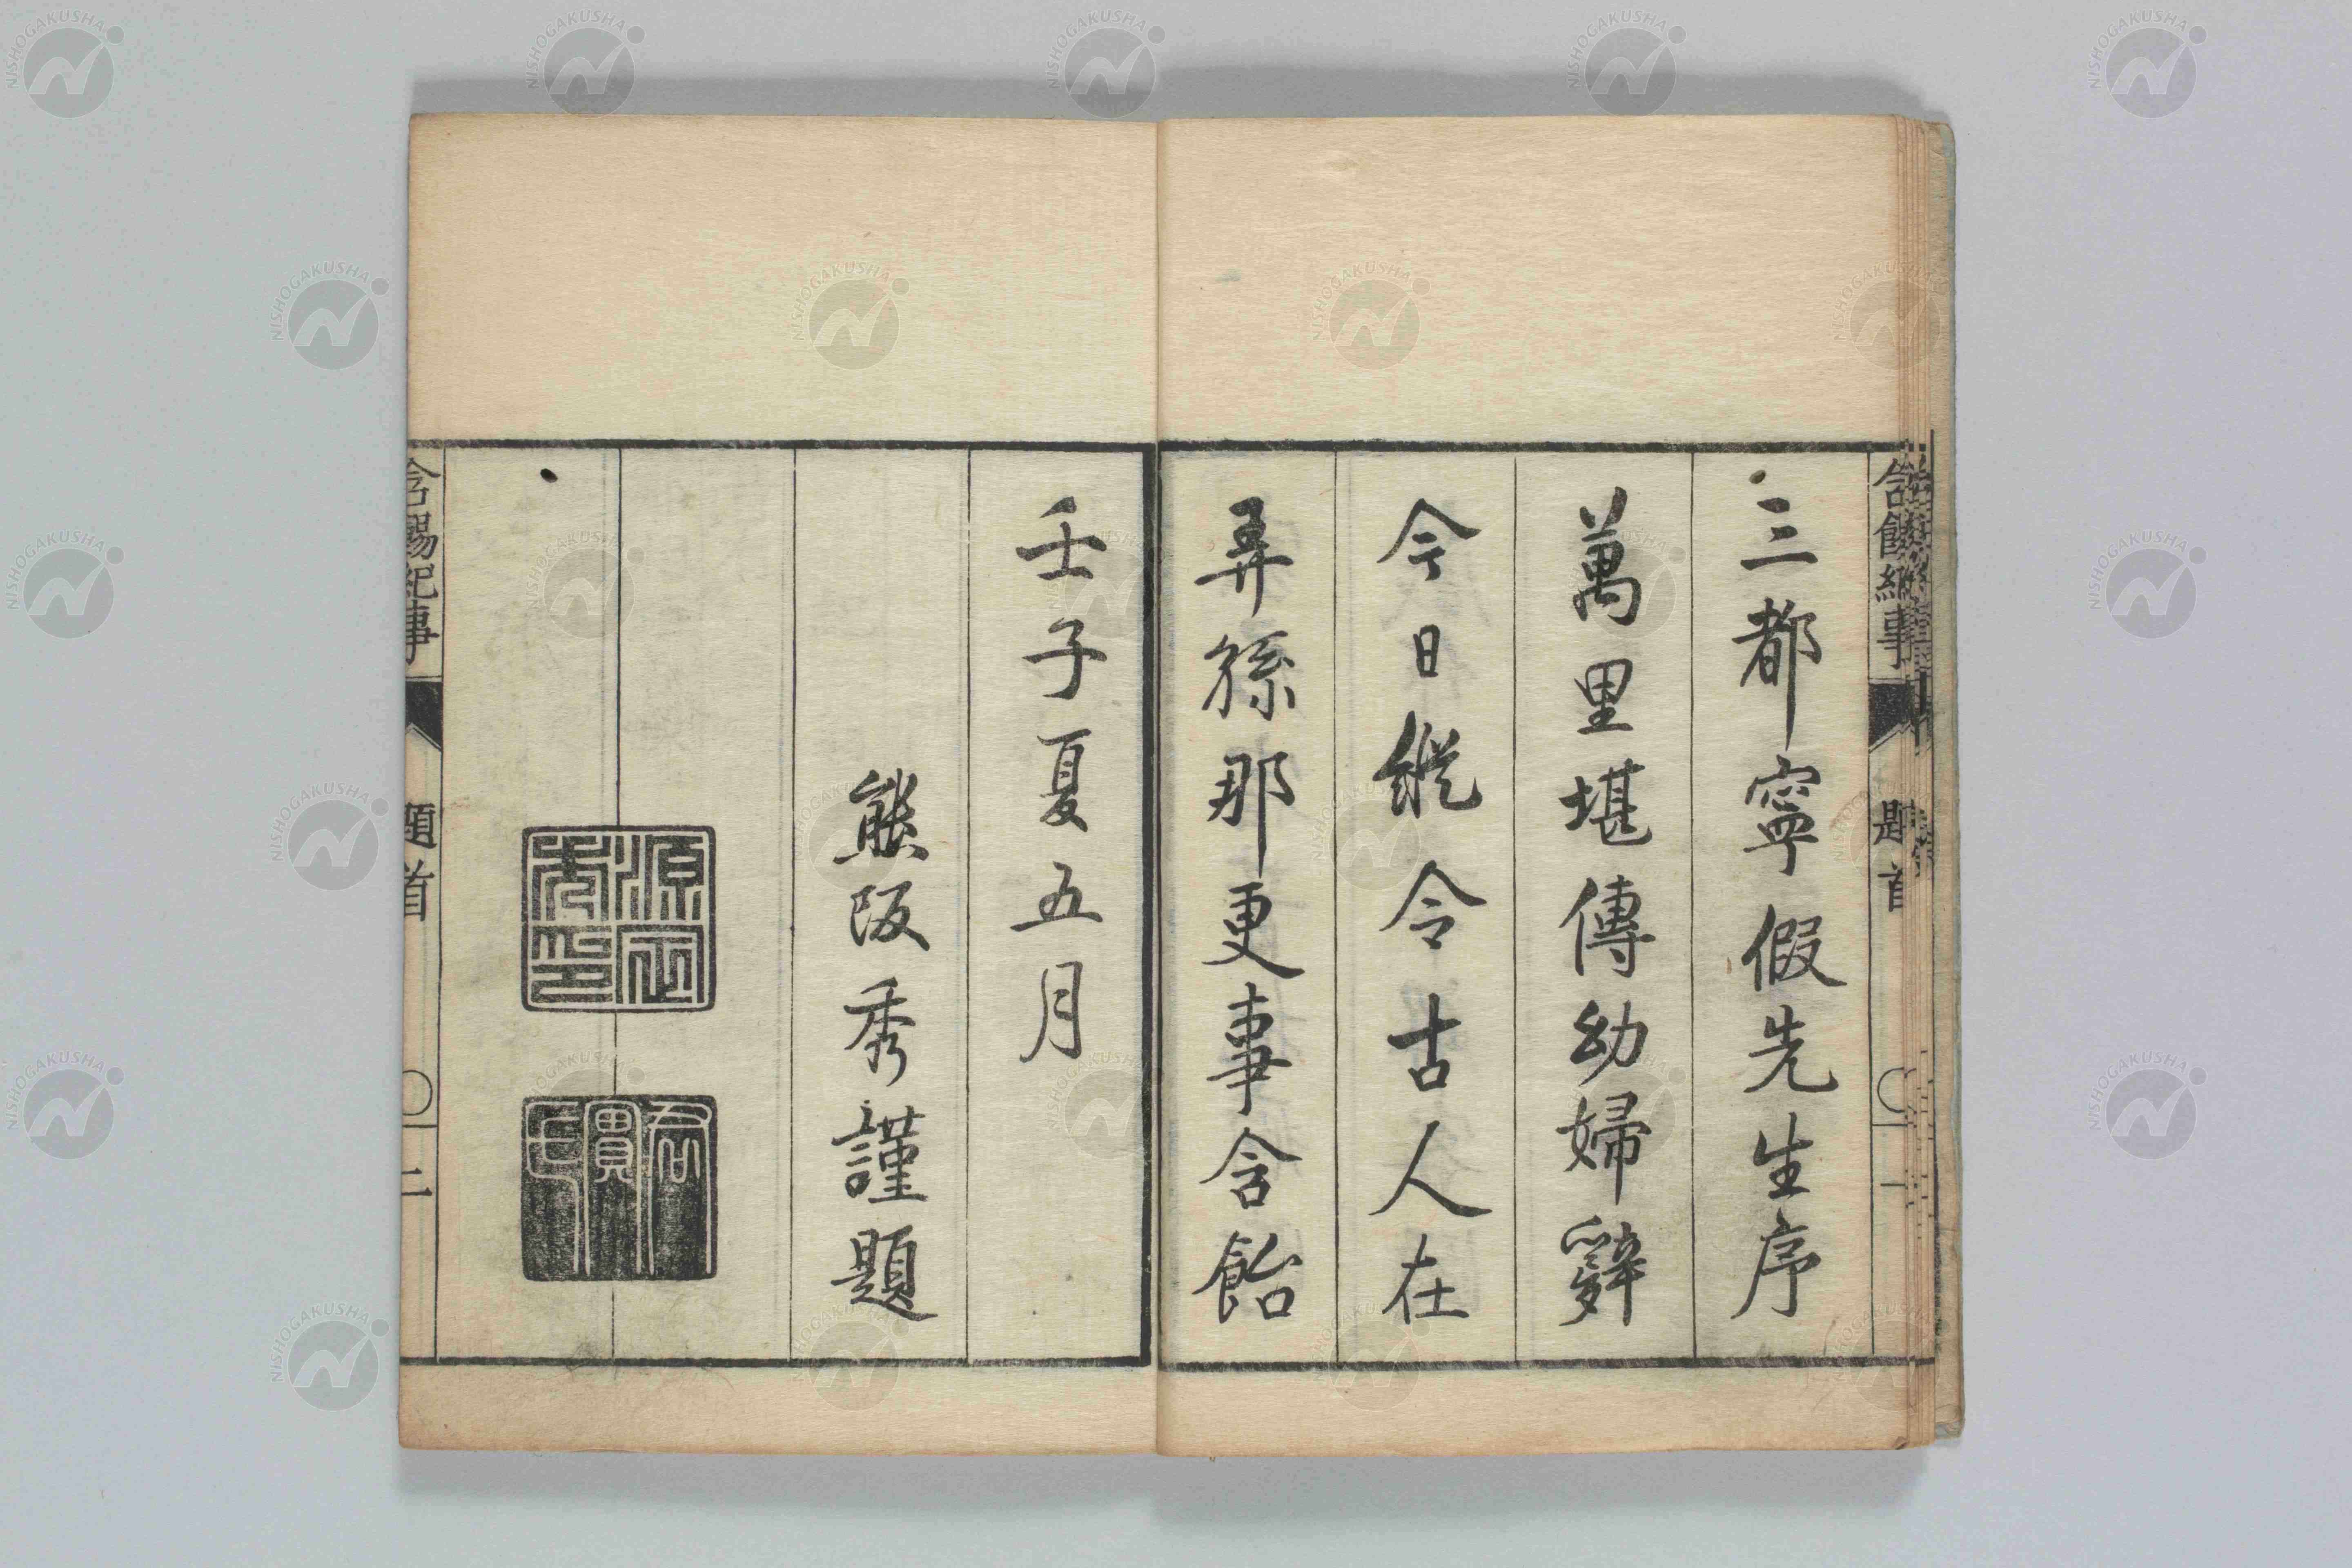 三都寧假先生序
萬里堪傳幼婦辭
今日縱令古人在
弄孫那更事含飴
壬子夏五月
熊阪秀謹題
含餳紀事
題首
二
NISHOGAKUSHA